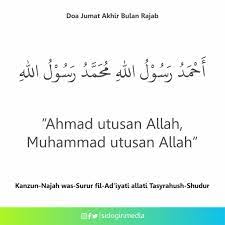 Doa Jumat Akhir Bulan Rajab
أَحْمَدُ رَسُوْلُ اللهِ مُحَمَّدٌ رَسُوْلُ اللهِ
“Ahmad utusan Allah,
Muhammad utusan Allah”
Kanzun-Najah was-Surur fil-Ad'iyati allati Tasyrahush-Shudur
/sidogirimedia